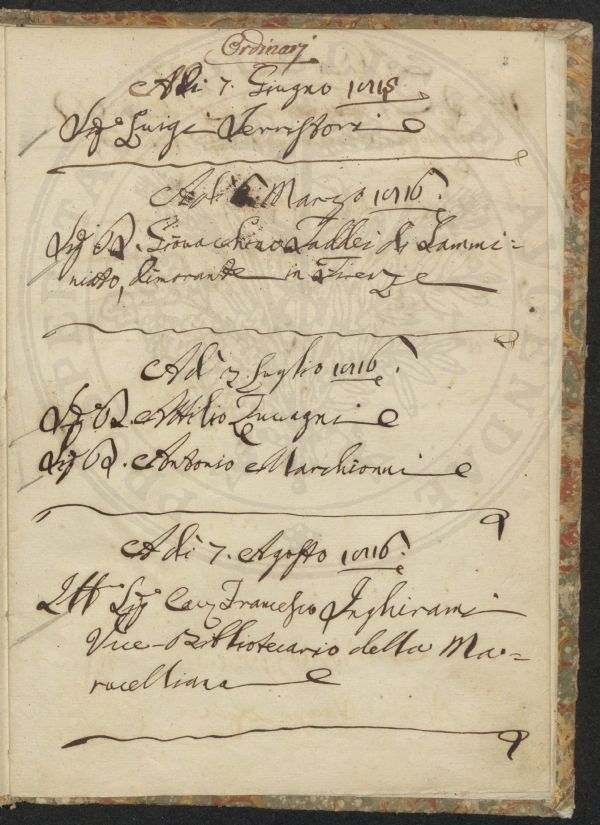 Ordinarj
Adi 7. Giugno 1815
Sig.e Luigi Serristori
Adi Marzo 1816.
Sig D. Giovacchino Taddei di Sammi=
niato, dimorante in Firenze
Adì 7. Luglio 1816.
Sig D. Attilio Zuccagni
Sig D. Antonio Marchionni
Adì 7. Agosto 1816.
Sig Cav Francesco Inghirami
Vice-Bibliotecario della Ma=
rucelliana